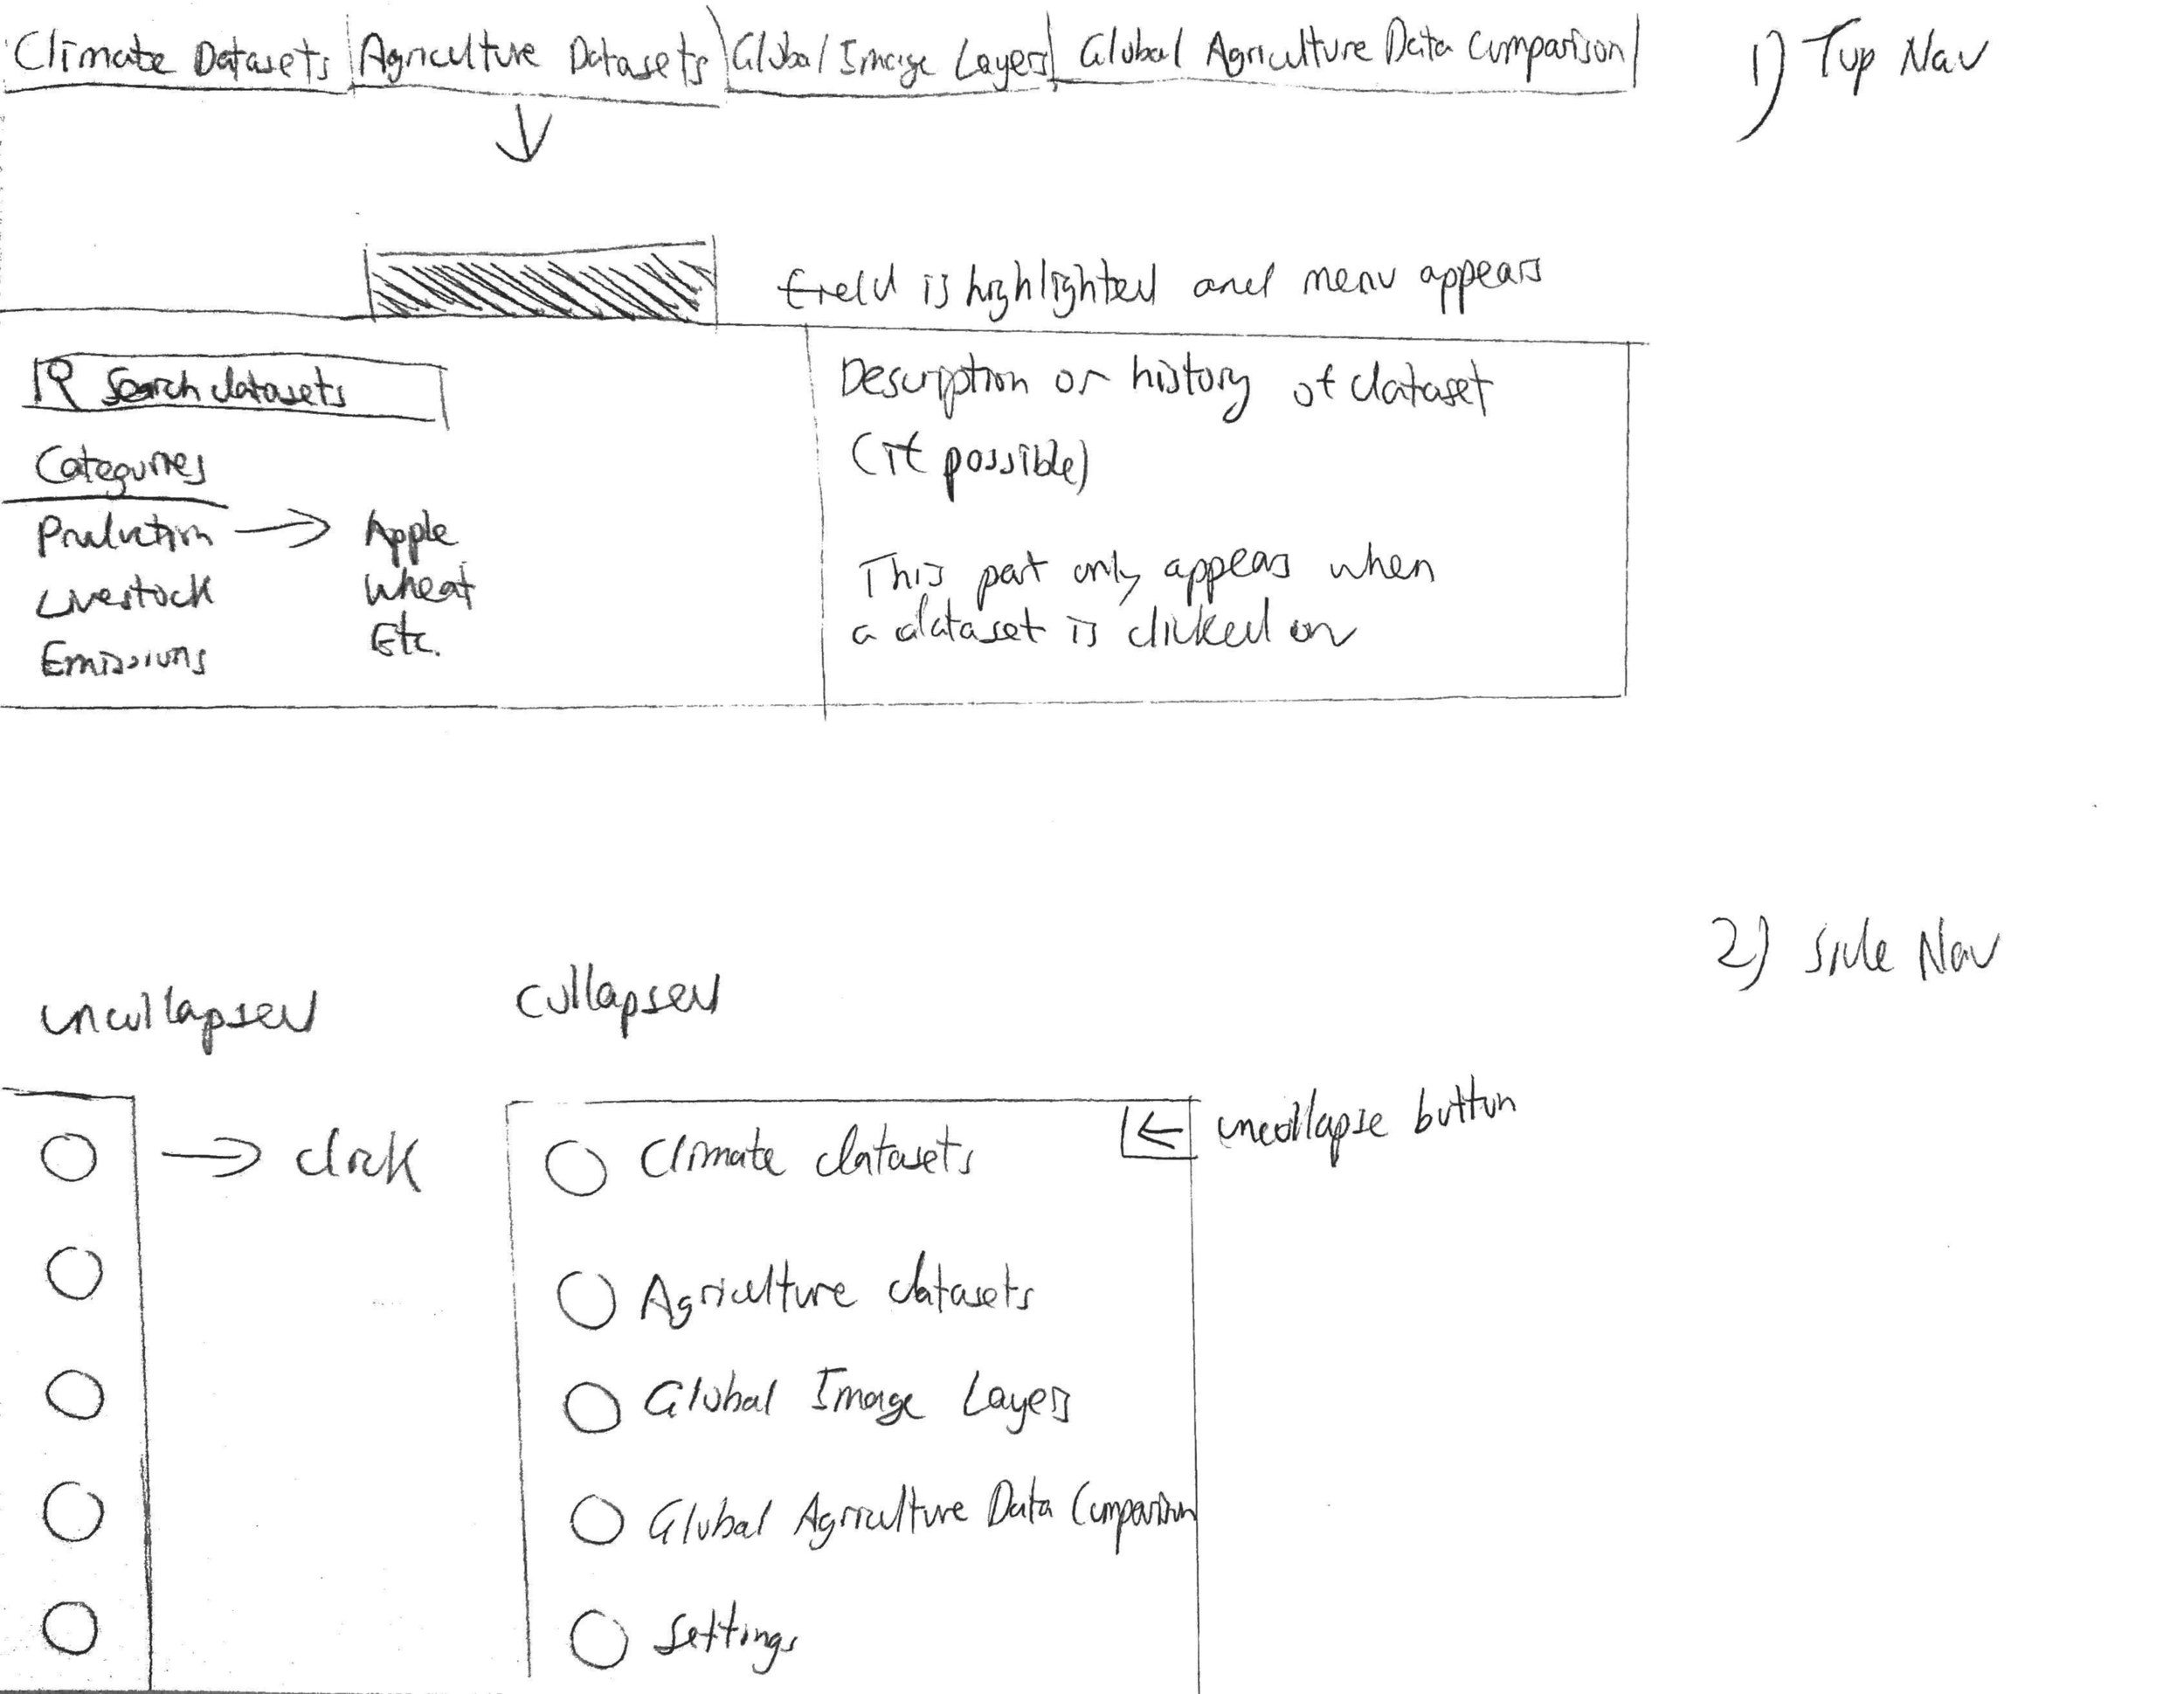 Climate Datasets Agriculture Datasets Global Image Layers Global Agriculture Data Comparison
1) Top Nav
field is highlighted and menu appears
Search datasets
Categories
Production → Apple
Livestock Wheat
Emissions Etc.
Description or history of dataset
(if possible)
This part only appears when
a dataset is clicked on
2) Side Nav
uncollapsed
collapsed
→ click
← uncollapse button
Climate datasets
Agriculture datasets
Global Image Layers
Global Agriculture Data Comparison
Settings